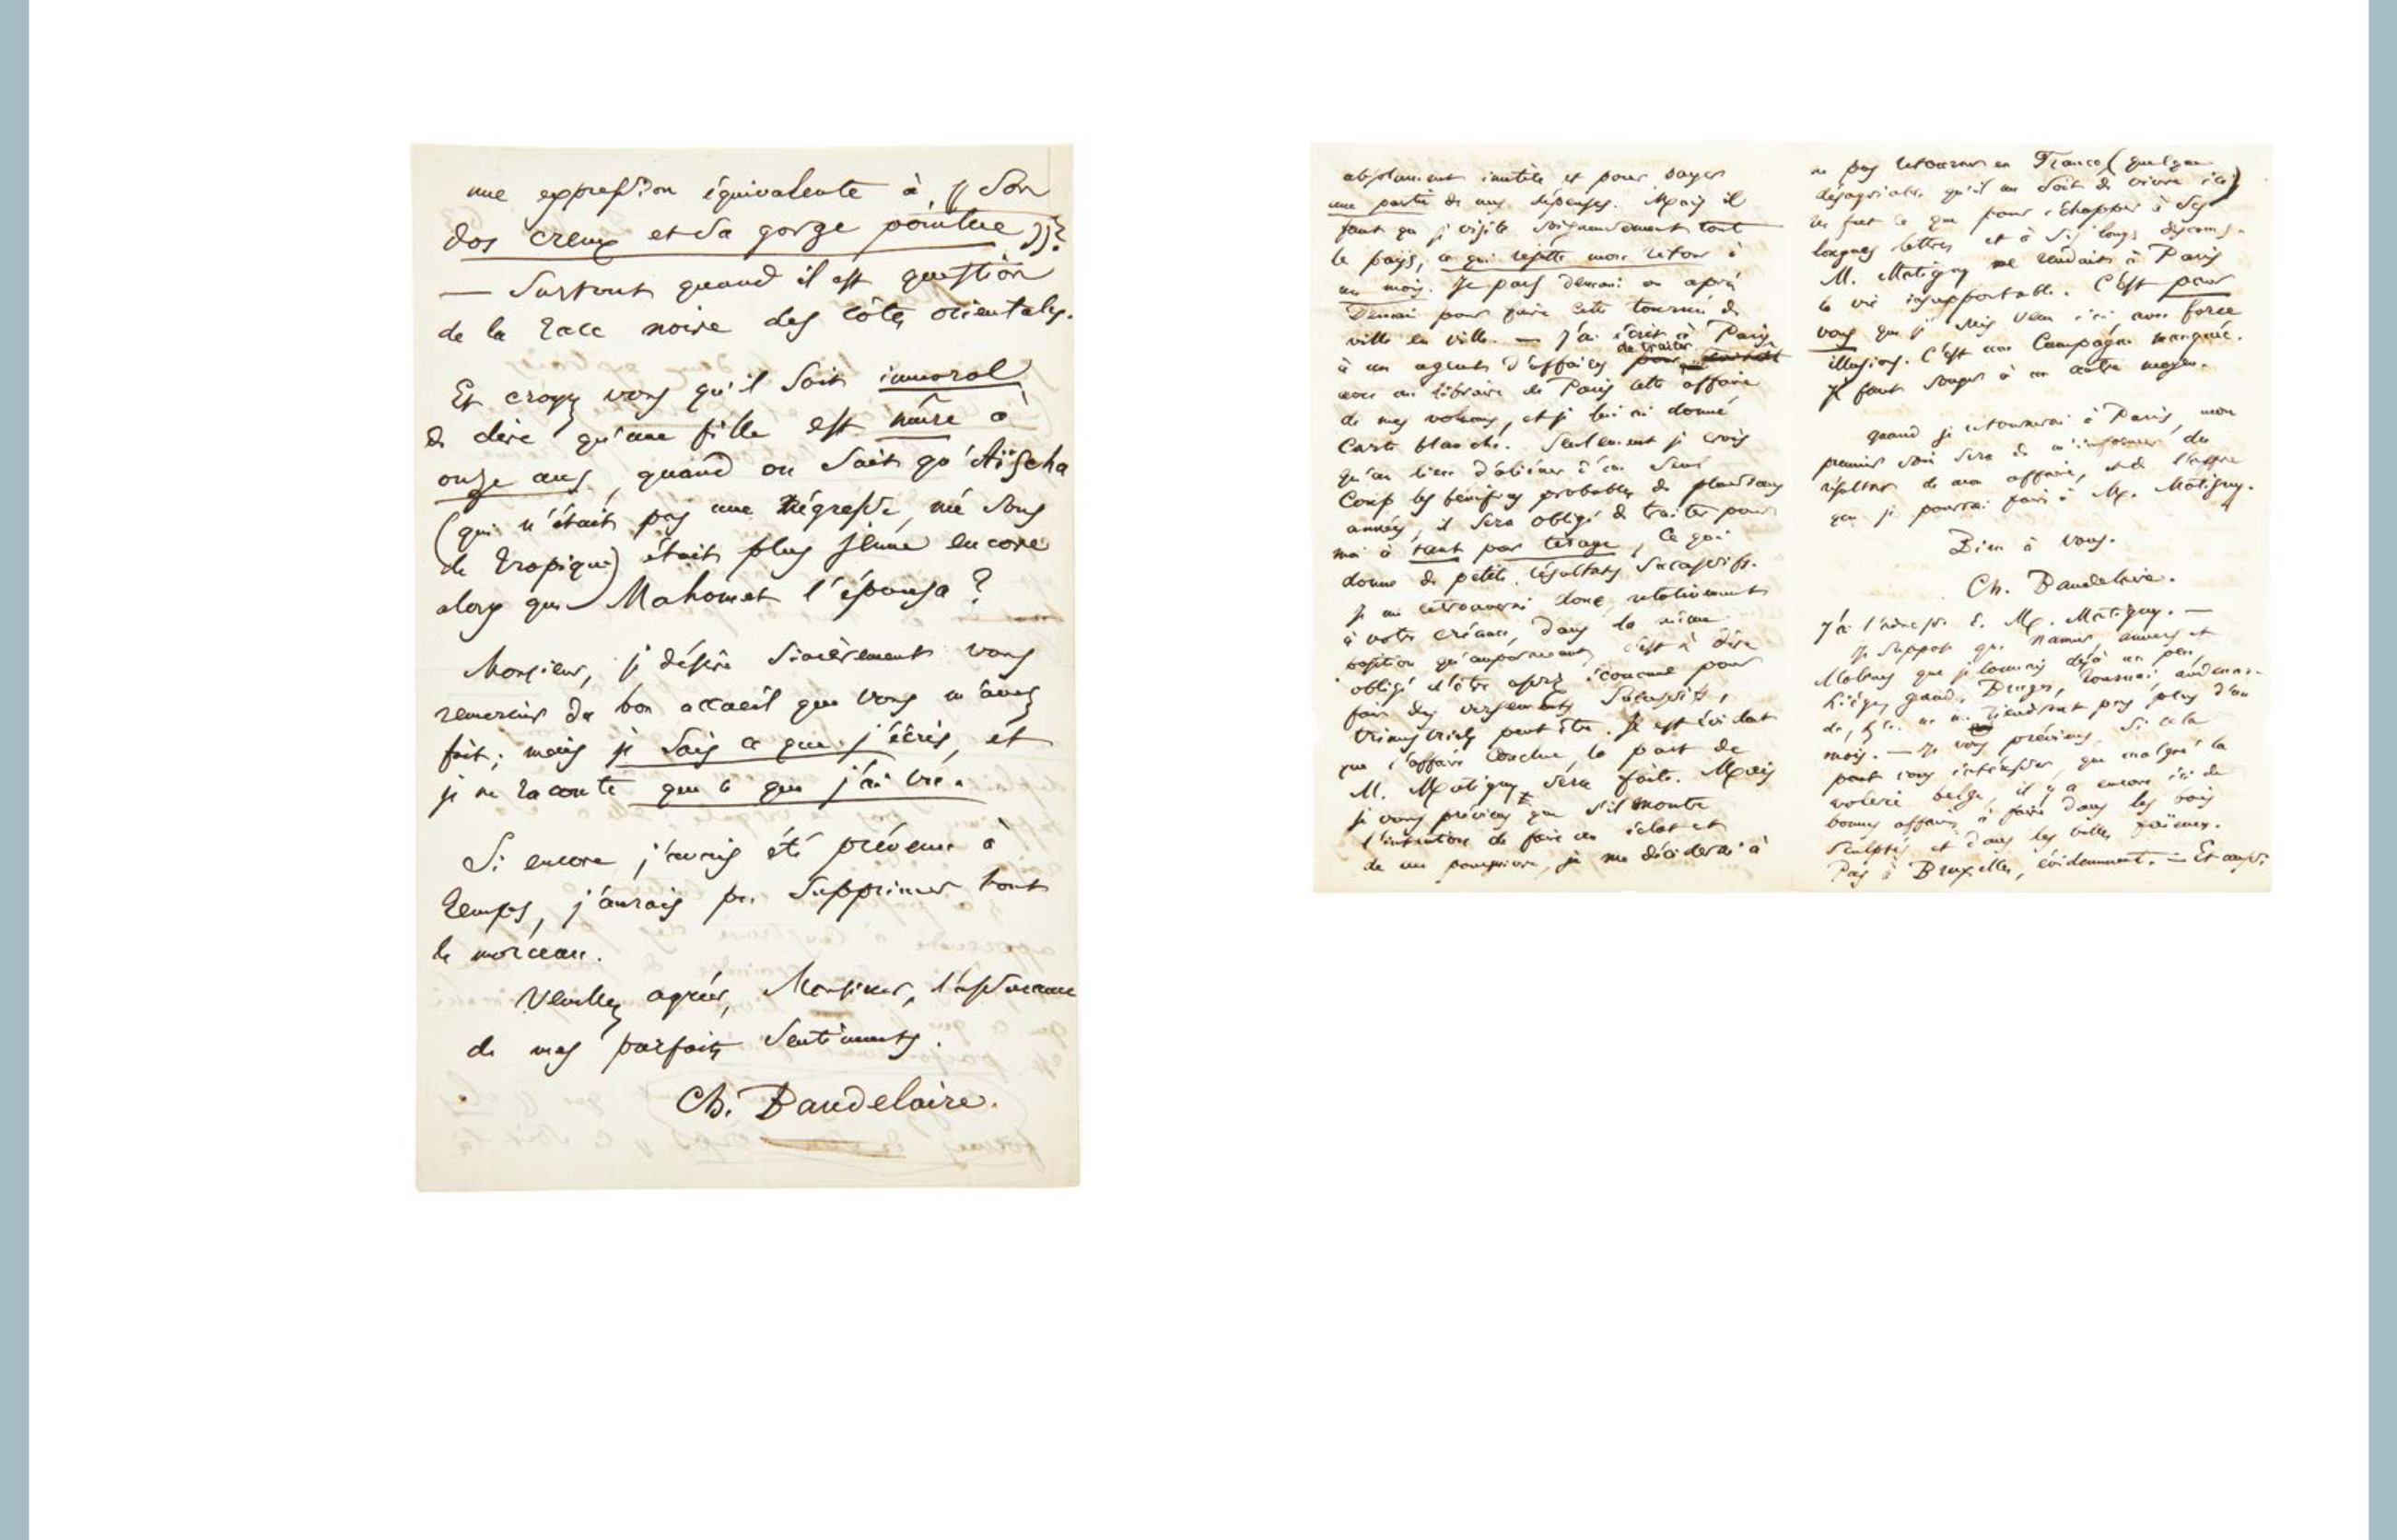 une expression équivalente à, « Son
dos creux et sa gorge pointue »?
— Surtout quand il est question
de la race noire des côtes orientales.
Et croyez vous qu'il soit immoral
de dire qu'une fille est mûre à
onze ans, quand on sait qu'Aïscha
(qui n'était pas une Négresse, née sous
le Tropique) était plus jeune encore
alors que Mahomet l'épousa ?
Monsieur, je désire sincèrement vous
remercier du bon accueil que vous m'avez
fait ; mais je sais ce que j'écris, et
je ne raconte que ce que j'ai vu.
Si encore j'avais été prévenu à
temps, j'aurais pu supprimer tout
le morceau.
Veuillez agréer, Monsieur, l'assurance
de mes parfaits sentiments.
Ch. Baudelaire.
absolument inutile et pour payer
une partie de mes dépenses. Mais il
faut que je visite soigneusement tout
le pays, ce qui rejette mon retour à
un mois. Je pars demain ou après
Demain pour faire cette tournée de
ville en ville. — J'ai écrit à Paris
à un agent d'affaires de traiter
avec un libraire de Paris cette affaire
de mes volumes, et je lui ai donné
Carte blanche. Seulement je crois
qu'au lieu d'aliéner d'un seul
Coup les bénéfices probables de plusieurs
années, il sera obligé de traiter pour
moi à tant par tirage, ce qui
donne de petits résultats successifs.
Je me retrouverai donc, relativement
à votre créance, dans la même
position qu'auparavant, c'est à dire
obligé d'être assez économe pour
faire des versements successifs,
trimestriels peut être. Il est évident
que l'affaire conclue, la part de
M. Matigny sera faite. Mais
je vous préviens que s'il montre
l'intention de faire un éclat et
de me poursuivre, je me déciderai à
ne pas retourner en France (quelque
désagréable qu'il me soit de vivre ici)
ne fût ce que pour échapper à ses
longues lettres et à ses longs discours.
M. Matigny me rendait à Paris
la vie insupportable. C'est pour
vous que je suis venu ici, avec force
illusions. C'est une Campagne manquée.
Il faut songer à un autre moyen.
Quand je retournerai à Paris, mon
premier soin sera de m'informer du
résultat de mon affaire, et de l'offre
que je pourrai faire à M. Matigny.
Bien à vous.
Ch. Baudelaire.
J'ai l'adresse de M. Matigny. —
Je suppose que Namur, Anvers et
Malines que je connais déjà un peu,
Liège, Gand, Bruges, Tournai, Audenar-
de, etc. ne me tiendront pas plus d'un
mois. — Je vous préviens, si cela
peut vous intéresser, que malgré la
volerie belge, il y a encore ici de
bonnes affaires à faire dans les bois
sculptés et dans les belles faïences.
Pas à Bruxelles, évidemment. — Et aussi